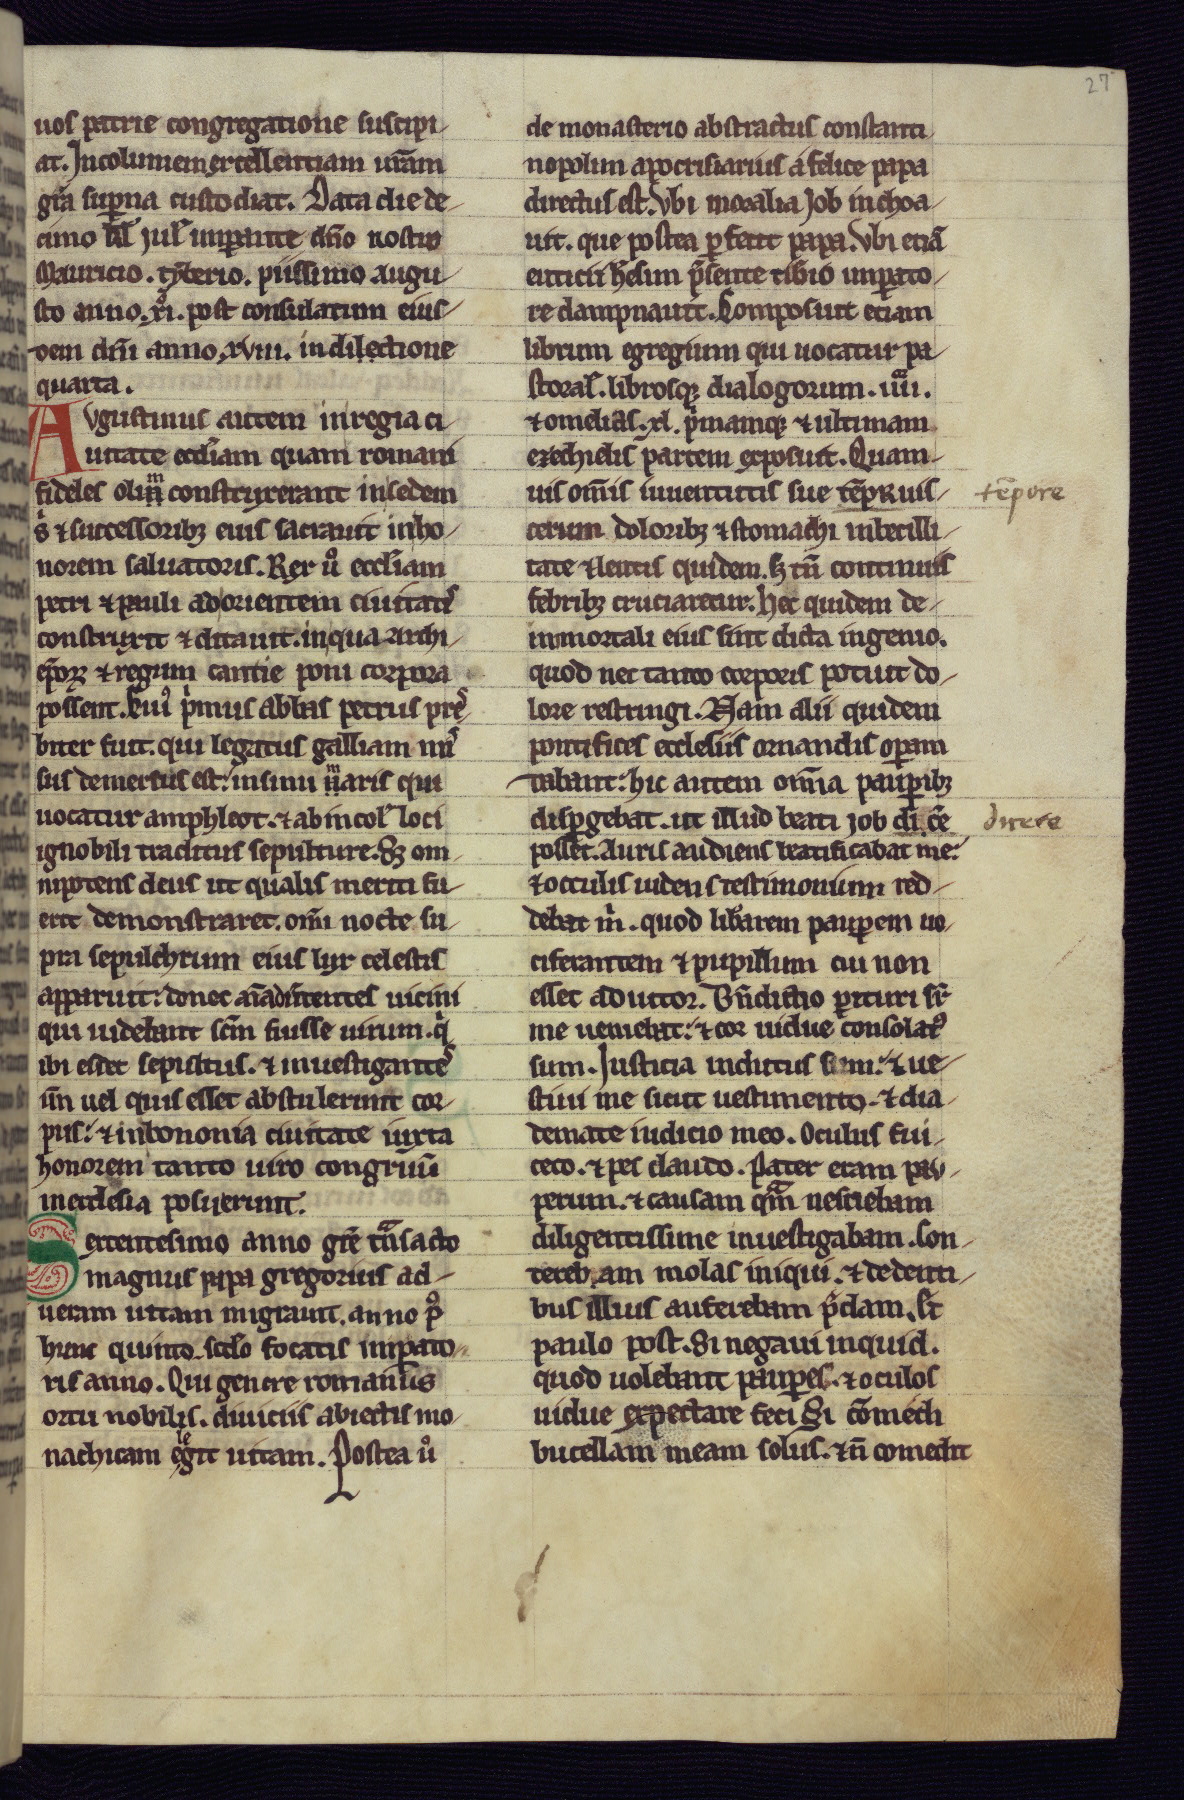 27
uos patrie congregatione suscipi-
at. Incolumem excellentiam ur̄am
gr̄a sup̄na custodiat. Data die de-
cimo kl̄ iul̄ imp̄ante dn̄o nostro
Mauricio. tyberio. piissimo augu-
sto anno. xi. post consulatum eius-
dem dn̄i anno. xviii. indilectione
quarta.
Augustinus autem in regia ci-
uitate eccl̄iam quam romani
fideles olim construxerant in sedem
s̄ & successorib; eius sacrauit in ho-
norem saluatoris. Rex u̾o eccl̄iam
petri & pauli ad orientem ciuitatis
construxit & ditauit. in qua archi-
ep̄oꝝ & regum cantie poni corpora
possent. Cui' p̾mus abbas petrus pres-
biter fuit. qui legatus galliam mis-
sus demersus est: in sinu maris qui
uocatur amphleot. & ab incol' loci
ignobili traditus sepulture. Sꝫ om-
nipotens deus ut qualis meriti fu-
erit demonstraret. om̄i nocte su-
pra sepulchrum eius lux celestis
apparuit: donec aīaduertentes uicini
qui uidebant scm̄ fuisse uirum. q̾
ibi esset sepultus. & inuestigantes
un̄ uel quis esset abstulerunt cor-
pus: & in bononia ciuitate iuxta
honorem tanto uiro congruū
in ecclesia posuerunt.
Sexcentesimo anno gr̄e tn̄sacto
magnus papa gregorius ad-
ueram uitam migrauit. anno p̾
hunc quinto scd̄o focatis imp̄ato-
ris anno. Qui genere romanus
ortu nobilis. diuiciis abiectis mo-
nachicam elegit uitam. Postea u̾o
de monasterio abstractus constanti
nopolim apocrisiarius a felice papa
directus est. Vbi moralia Job inchoa-
uit. que postea ꝑfecit papa. Vbi etiā
euticii h̄esim p̄sente tib̄io imp̄ato-
re dampnauit. Composuit etiam
librum egregium qui uocatur pa-
storal̄. librosq; dialogorum. iiii.
& omelias. xl. p̾mamq; & ultimam
ezechielis partem exposuit. Quam-
uis om̄is iuuentutis sue tēpr̄ uis-
tēpore
cerum doloribꝫ & stomachi inbecilli-
tate & lentis quidem. sꝫ tn̄ continuis
febribꝫ cruciaretur. Hec quidem de-
inmortali eius sint dicta ingenio.
quod nec tanto corporis potuit do-
lore restringi. Nam alii quidem
pontifices ecclesiis ornandis op̄am
dabant: hic autem om̄ia paup̄ibꝫ
disp̄gebat. ut illud beati iob di.cē
dicere
posset. Auris audiens beatificabat me:
& occulis uidens testimonium red-
debat m̄. quod lib̄arem paup̄em uo-
ciferantem & pupillum cui non
esset adiutor. Bn̄dictio ꝑituri sr̄
me ueniebat: & cor uidue consolat̾
sum. Iusticia indutus sum: & ue-
stiui me sicut uestimento. & dia-
demate iudicio meo. Oculus fui
ceco. & pes claudo. Pater eram pau-
perum. & causam qm̄ nesciebam
diligentissime inuestigabam. Con-
tereb am molas iniqui. & de denti-
bus illius auferebam p̄dam. Et
paulo post. Si negaui inquid.
quod uolebant paup̄es. & oculos
uidue expectare feci Si cōmedi
bucellam meam solus. & n̄ comedit